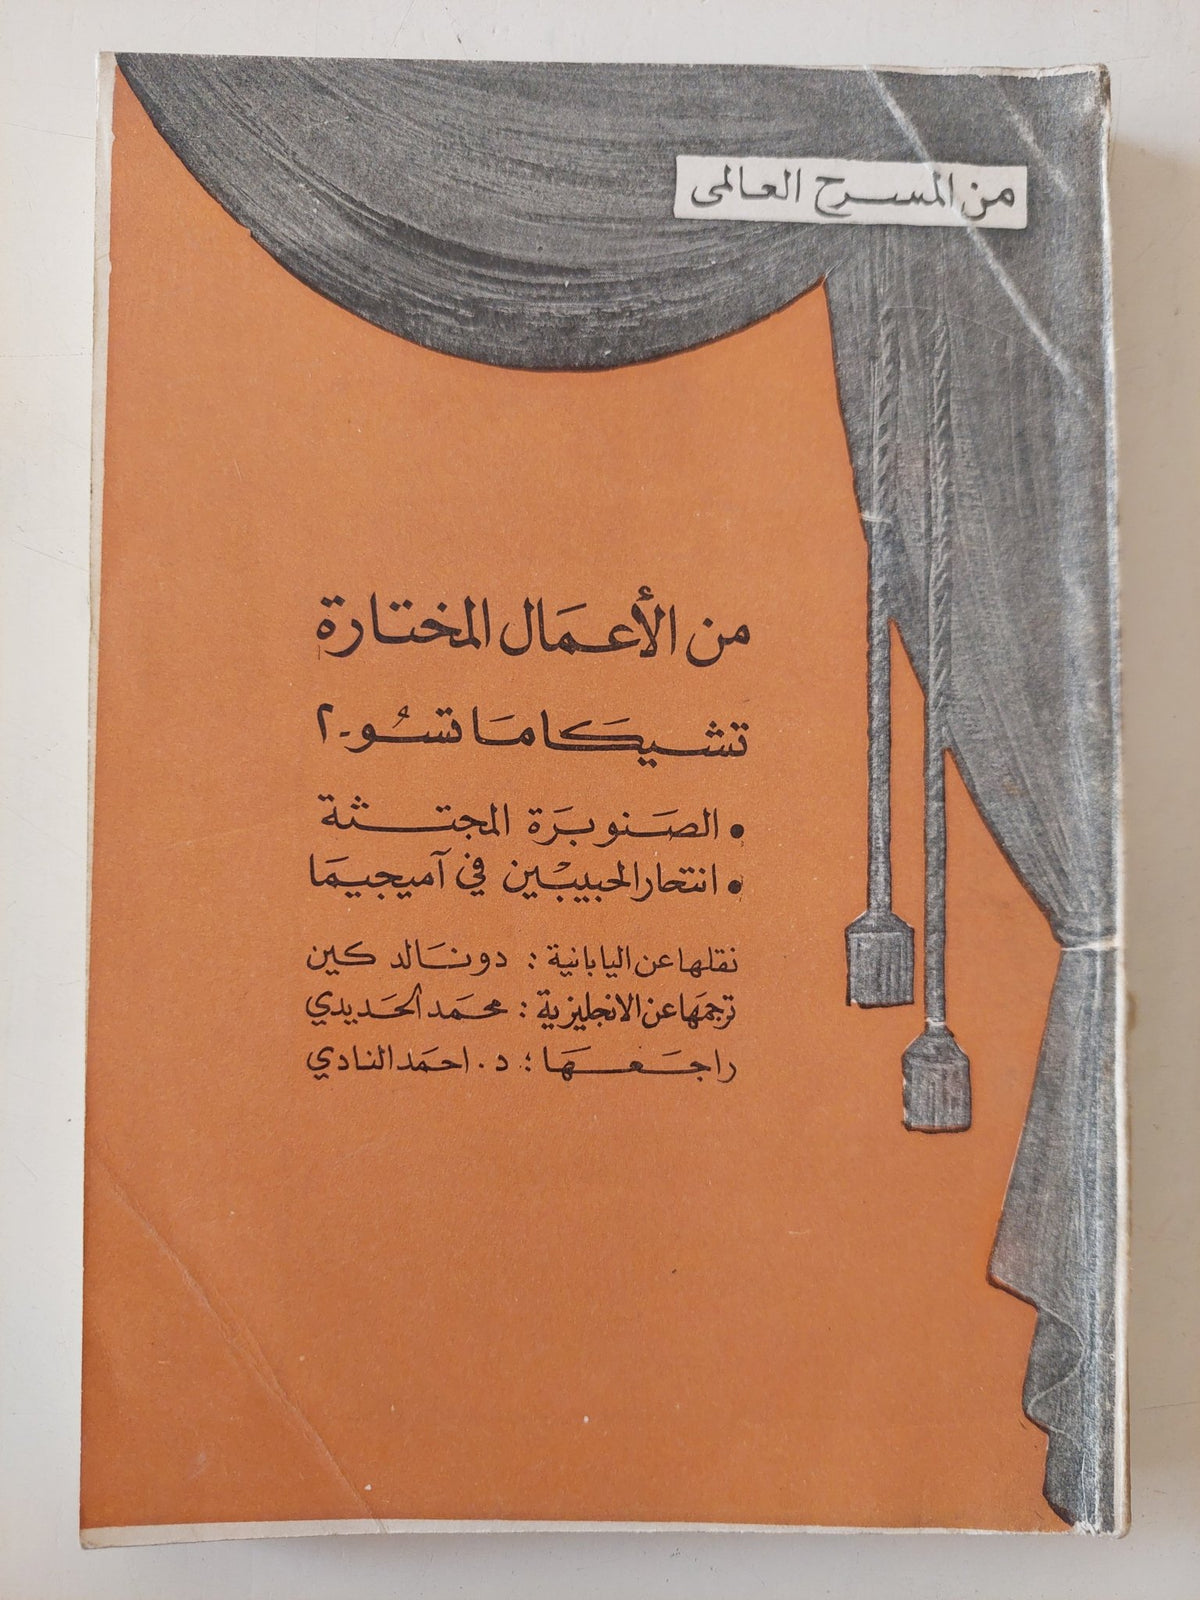 من المسرح العالمى
من الأعمال المختارة
تشيكاماتسو - ٢
• الصنوبرة المجتثة
• انتحار الحبيبين في آميجيما
نقلها عن اليابانية : دونالد كين
ترجمها عن الانجليزية : محمد الحديدي
راجعها : د. احمد النادي